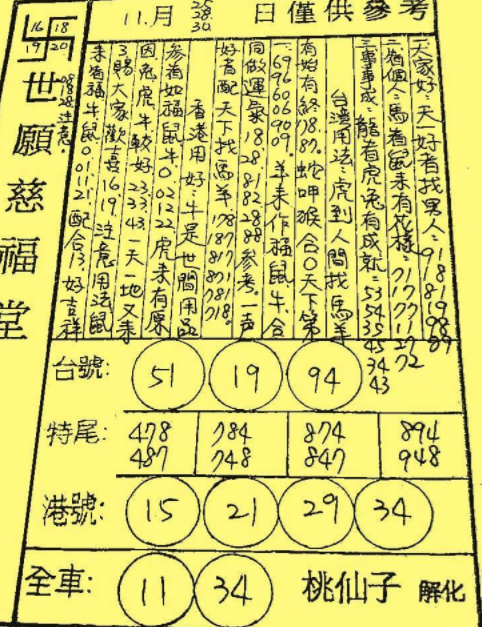 11.月 25 28 30 日僅供參考
16 18
19 20
卐
08 28 注意。
世願慈福堂
大家好：天一好者找男人：91 81 19 89 98 89
二有個人：馬看鼠未有花樣：71 17 71 27 72
三事事成：龍看虎兔有成就：53 54 35 45 34 43
台灣用法：虎到人間找馬羊
有始有終78.87。蛇呷猴合0天下第
一69 96 06 90 09。羊來作福鼠牛。合
同做運氣18 28 81 82 88 參考。一声
好者配天下找馬羊178 187 817 871 781 718。
香港用好：牛是世間用品
參考如福鼠牛0 02 12 22 虎未有原
因兔虎牛較好23 33 43 一天一地又来
3賜大家歡喜16 19 注意用法鼠
未有福牛鼠0 01 12 配合13 好吉祥
台號: 51 19 94
特尾: 478 784 874 894
487 748 847 948
港號: 15 21 29 34
全車: 11 34 桃仙子 解化